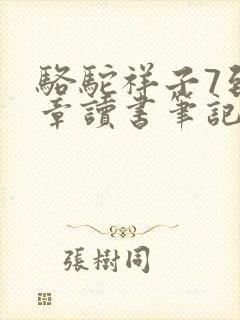 駱駝祥子7
章讀書筆記
張樹同